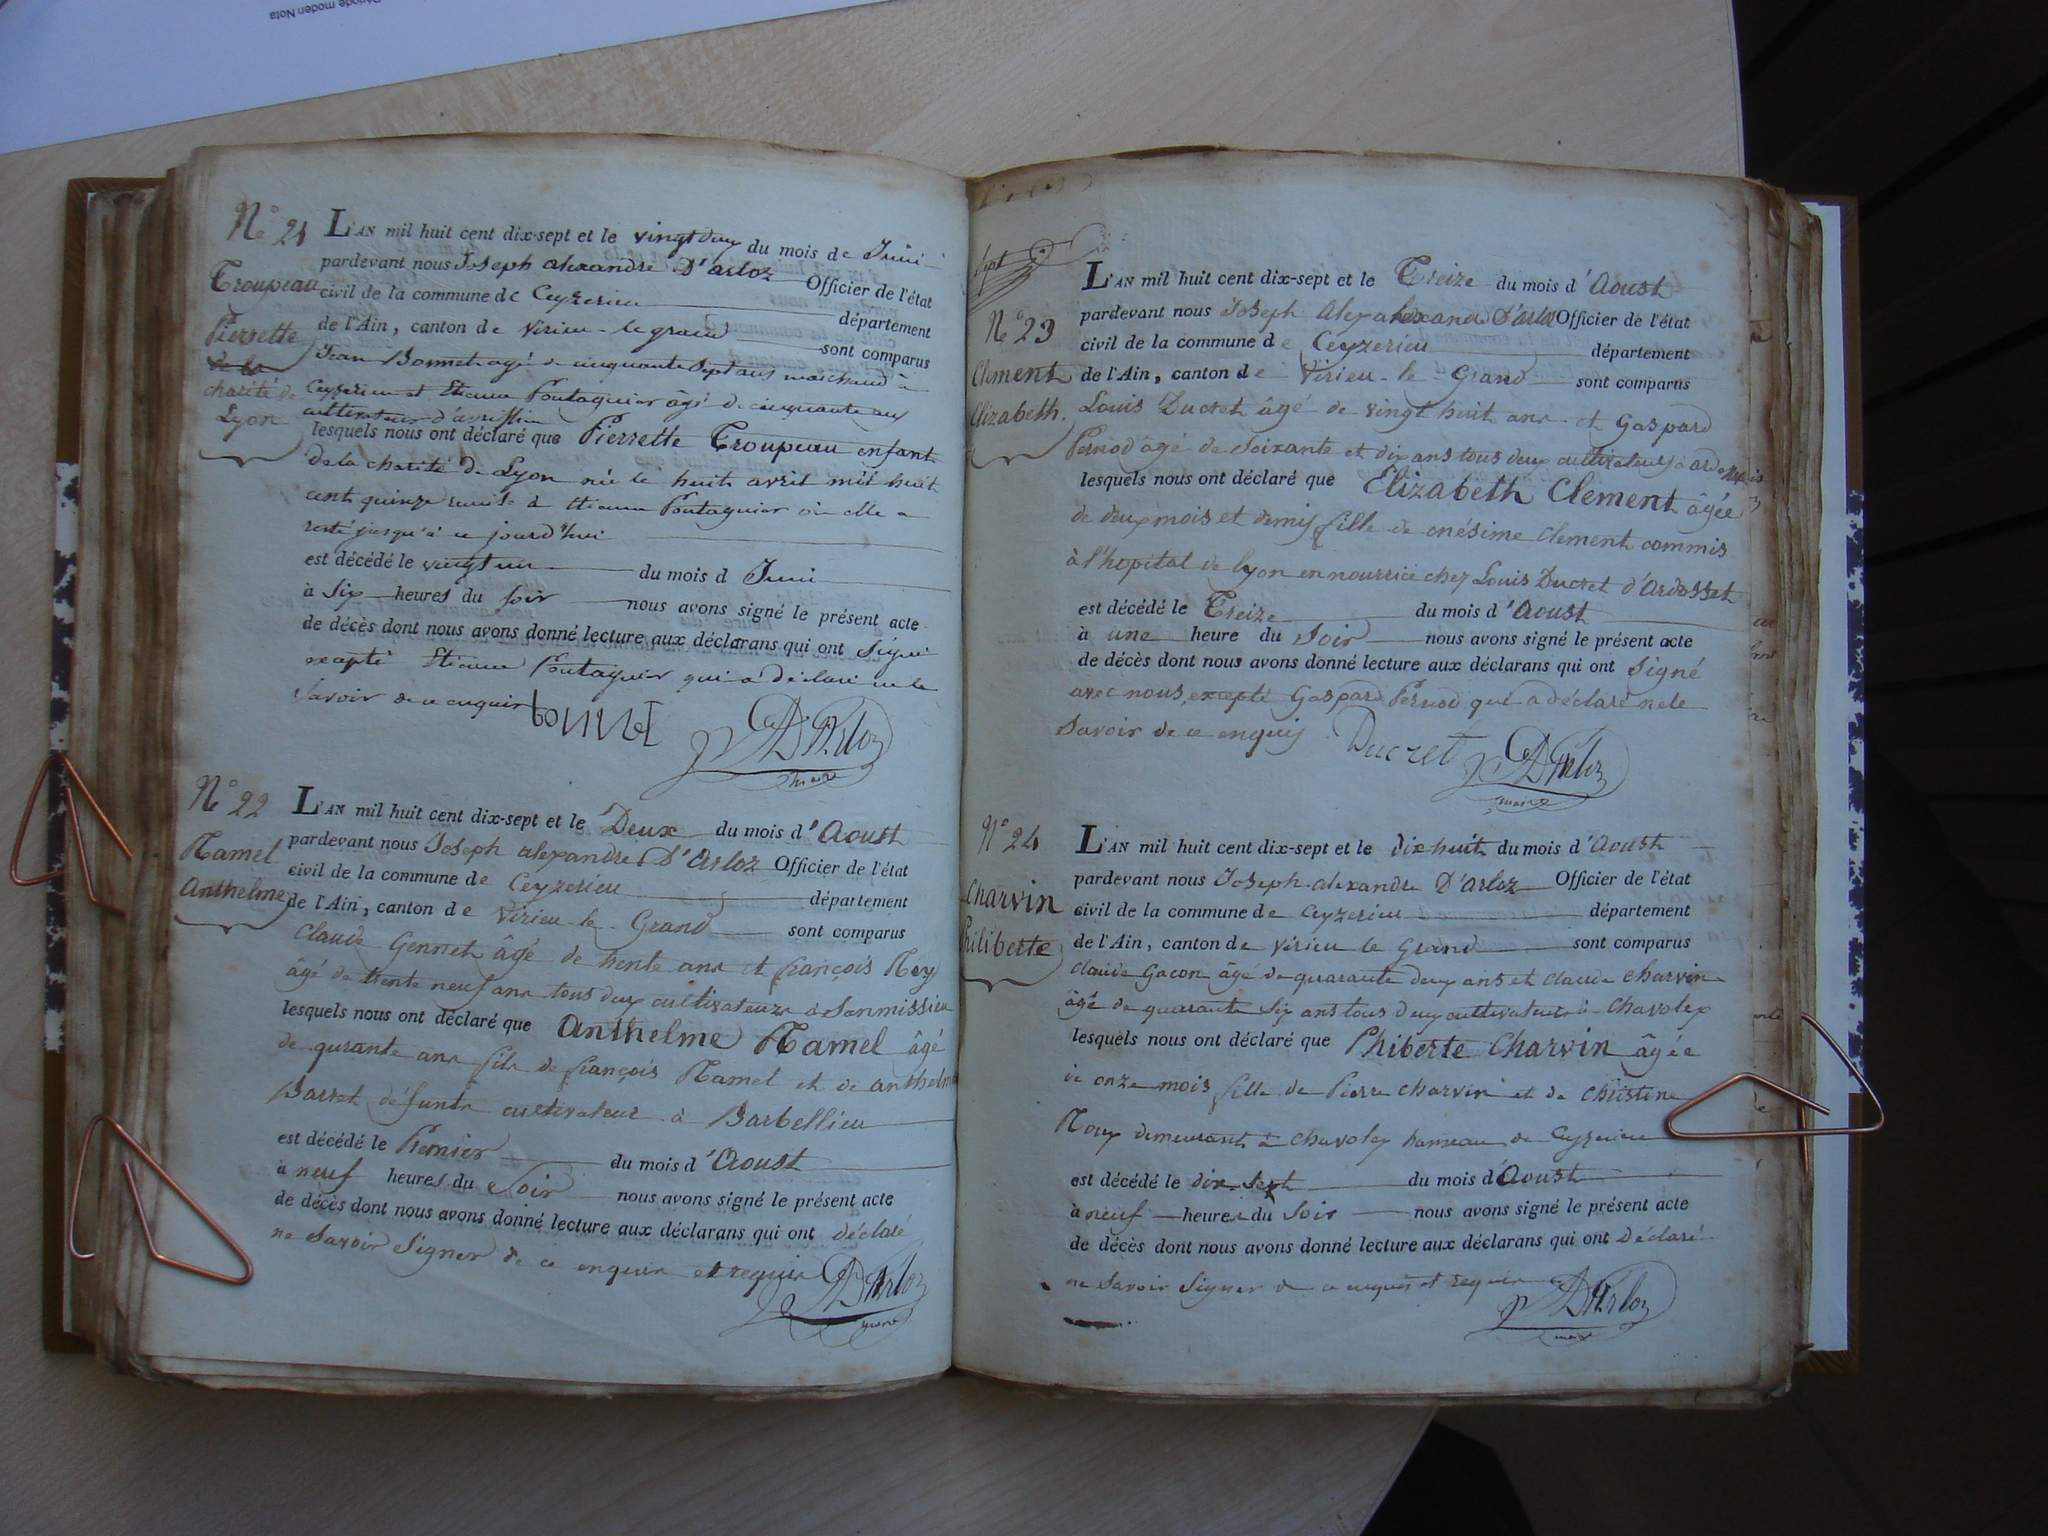 Période moden Nota
N.° 21
Troupeau
Pierrette
de la
charité de
Lyon
L'AN mil huit cent dix-sept et le vingt deux du mois de Juin
pardevant nous Joseph alexandre D'arloz Officier de l'état
civil de la commune de Ceyzerieu département
de l'Ain, canton de Virieu-le grand sont comparus
Jean Bonnet agé de cinquante sept ans marchand à
Ceyzerieu et Etienne Poutaguier âgé de cinquante ans
cultivateur
lesquels nous ont déclaré que Pierrette Troupeau enfant
de la charité de Lyon née le huit avril mil huit
cent quinze remise à Etienne Poutaguier où elle a
resté jusqu'à ce jourd'hui
est décédé le vingt un du mois d Juin
à Six heures du soir nous avons signé le présent acte
de décès dont nous avons donné lecture aux déclarans qui ont signé
excepté Etienne Poutaguier qui a déclaré ne le
savoir de ce enquis bonnet
D'Arloz
maire
N.° 22
Ramel
Anthelme
L'AN mil huit cent dix-sept et le Deux du mois d'Aoust
pardevant nous Joseph alexandre D'Arloz Officier de l'état
civil de la commune de Ceyzerieu département
de l'Ain, canton de Virieu le Grand sont comparus
Claude Gennet âgé de trente ans et françois Rey
âgé de trente neuf ans tous deux cultivateurs à Sanmissieu
lesquels nous ont déclaré que Anthelme Ramel âgé
de qurante ans fils de françois Ramel et de anthelme
Barret défunts cultivateur à Barbellieu
est décédé le Premier du mois d'Aoust
à neuf heures du Soir nous avons signé le présent acte
de décès dont nous avons donné lecture aux déclarans qui ont déclaré
ne Savoir Signer de ce enquis et requis D'Arloz
maire
Sept
N.° 23
Clement
Elizabeth.
L'AN mil huit cent dix-sept et le Treize du mois d'Aoust
pardevant nous Joseph D'arloz Officier de l'état
civil de la commune de Ceyzerieu département
de l'Ain, canton de Virieu-le-Grand sont comparus
Louis Ducret âgé de vingt huit ans et Gaspard
Pernod âgé de Soixante et dix ans tous deux cultivateurs à
lesquels nous ont déclaré que Elizabeth Clement âgée
de deux mois et demis fille de onésime Clement commis
à l'hopital de lyon en nourrice chez Louis Ducret d'Ardosset
est décédé le Treize du mois d'Aoust
à une heure du Soir nous avons signé le présent acte
de décès dont nous avons donné lecture aux déclarans qui ont signé
avec nous, excepté Gaspard Pernod qui a déclaré ne le
Savoir de ce enquis Ducret D'Arloz
maire
N.° 24
Charvin
Philiberte
L'AN mil huit cent dix-sept et le dix huit du mois d'Aoust
pardevant nous Joseph alexandre D'arloz Officier de l'état
civil de la commune de Ceyzerieu département
de l'Ain, canton de Virieu le Grand sont comparus
Claude Gacon âgé de quarante deux ans et claude Charvin
âgé de quarante six ans tous deux cultivateurs à Chavoley
lesquels nous ont déclaré que Phiberte Charvin âgée
de onze mois fille de Pierre Charvin et de Christine
Roux demeurant à Chavoley hameau de Ceyzerieu
est décédé le dix-Sept du mois d'Aoust
à neuf heures du Soir nous avons signé le présent acte
de décès dont nous avons donné lecture aux déclarans qui ont Déclaré
ne Savoir Signer de ce enquis et requis D'Arloz
maire